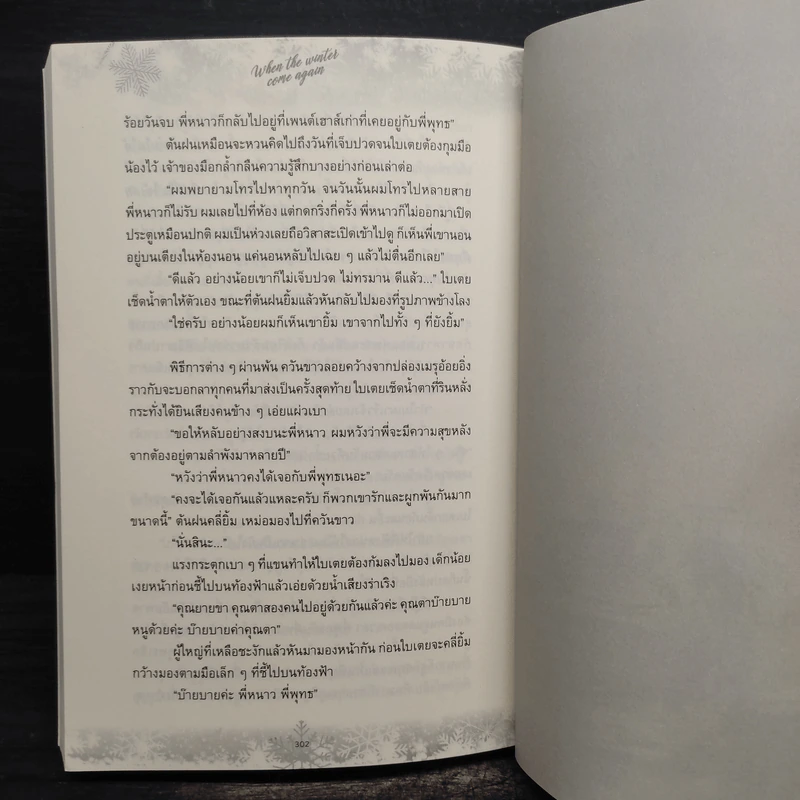 When the winter
come again
ร้อยวันจบ พี่หนาวก็กลับไปอยู่ที่เพนต์เฮาส์เก่าที่เคยอยู่กับพี่พุทธ”
ต้นฝนเหมือนจะหวนคิดไปถึงวันที่เจ็บปวดจนใบเตยต้องกุมมือ
น้องไว้ เจ้าของมือกล้ำกลืนความรู้สึกบางอย่างก่อนเล่าต่อ
“ผมพยายามโทรไปหาทุกวัน จนวันนั้นผมโทรไปหลายสาย
พี่หนาวก็ไม่รับ ผมเลยไปที่ห้อง แต่กดกริ่งกี่ครั้ง พี่หนาวก็ไม่ออกมาเปิด
ประตูเหมือนปกติ ผมเป็นห่วงเลยถือวิสาสะเปิดเข้าไปดู ก็เห็นพี่เขานอน
อยู่บนเตียงในห้องนอน แค่นอนหลับไปเฉย ๆ แล้วไม่ตื่นอีกเลย”
“ดีแล้ว อย่างน้อยเขาก็ไม่เจ็บปวด ไม่ทรมาน ดีแล้ว...” ใบเตย
เช็ดน้ำตาให้ตัวเอง ขณะที่ต้นฝนยิ้มแล้วหันกลับไปมองที่รูปภาพข้างโลง
“ใช่ครับ อย่างน้อยผมก็เห็นเขายิ้ม เขาจากไปทั้ง ๆ ที่ยังยิ้ม”
พิธีการต่าง ๆ ผ่านพ้น ควันขาวลอยคว้างจากปล่องเมรุอ้อยอิ่ง
ราวกับจะบอกลาทุกคนที่มาส่งเป็นครั้งสุดท้าย ใบเตยเช็ดน้ำตาที่รินหลั่ง
กระทั่งได้ยินเสียงคนข้าง ๆ เอ่ยแผ่วเบา
“ขอให้หลับอย่างสงบนะพี่หนาว ผมหวังว่าพี่จะมีความสุขหลัง
จากต้องอยู่ตามลำพังมาหลายปี”
“หวังว่าพี่หนาวคงได้เจอกับพี่พุทธเนอะ”
“คงจะได้เจอกันแล้วแหละครับ ก็พวกเขารักและผูกพันกันมาก
ขนาดนี้” ต้นฝนคลี่ยิ้ม เหม่อมองไปที่ควันขาว
“นั่นสินะ...”
แรงกระตุกเบา ๆ ที่แขนทำให้ใบเตยต้องก้มลงไปมอง เด็กน้อย
เงยหน้าก่อนชี้ไปบนท้องฟ้าแล้วเอ่ยด้วยน้ำเสียงร่าเริง
“คุณยายขา คุณตาสองคนไปอยู่ด้วยกันแล้วค่ะ คุณตาบ๊ายบาย
หนูด้วยค่ะ บ๊ายบายค่าคุณตา”
ผู้ใหญ่ที่เหลือชะงักแล้วหันมามองหน้ากัน ก่อนใบเตยจะคลี่ยิ้ม
กว้างมองตามมือเล็ก ๆ ที่ชี้ไปบนท้องฟ้า
“บ๊ายบายค่ะ พี่หนาว พี่พุทธ”
302